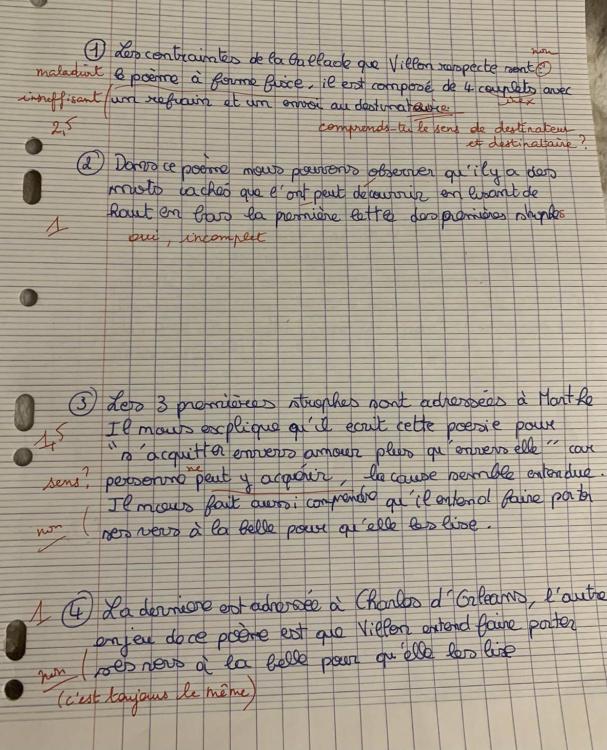 ① Les contraintes de la ballade que Villon respecte sont ⊖ non
maladroit le poème à forme fixe, il est composé de 4 couplets avec
insuffisant un refrain et un envoi au destinataire
2,5 comprends-tu le sens de destinateur
et destinataire ?
② Dans ce poème nous pouvons observer qu'il y a des
mots cachés que l'ont peut découvrir en lisant de
haut en bas la première lettre des premières strophes
1
oui, incomplet
③ Les 3 premières strophes sont adressées à Marthe
Il nous explique qu'il écrit cette poésie pour
1,5 "s'acquitter envers amour plus qu'envers elle" car
sens ? personne ne peut y acquérir, la cause semble entendue.
Il nous fait aussi comprendre qu'il entend faire porter
non ses vers à la belle pour qu'elle les lise.
1 ④ La dernière est adressée à Charles d'Orléans, l'autre
enjeu de ce poème est que Villon entend faire porter
non ses vers à la belle pour qu'elle les lise
(c'est toujours le même)